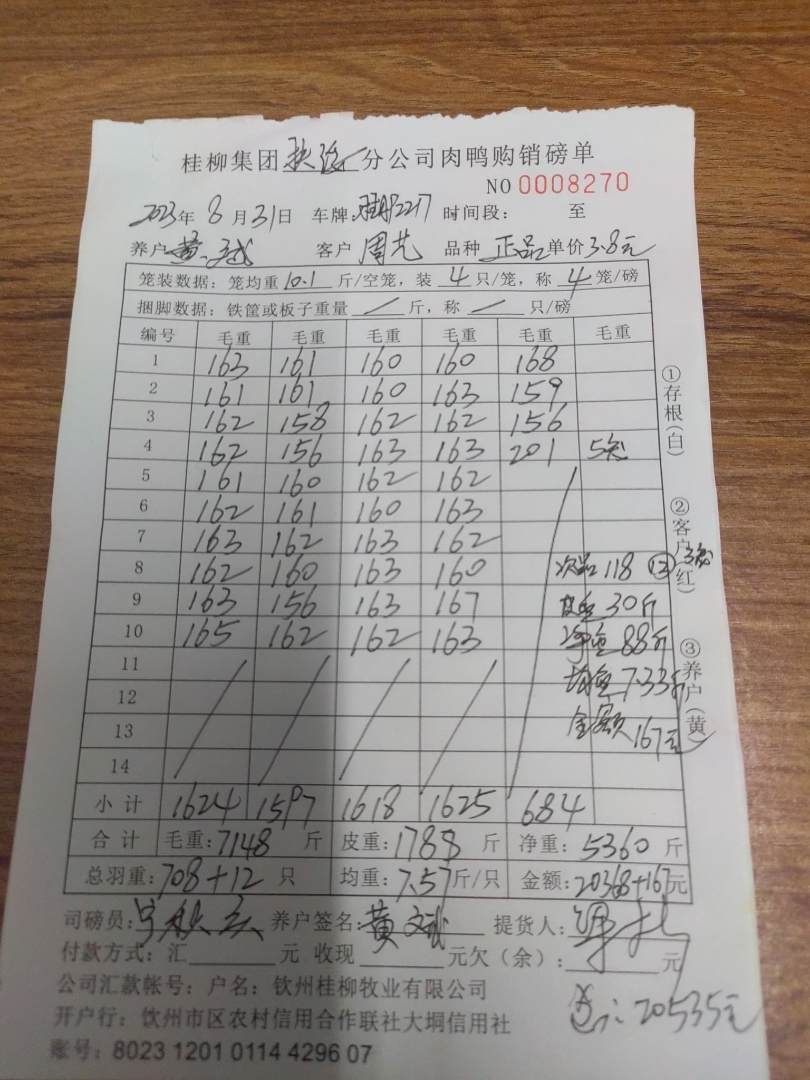 桂柳集团 分公司肉鸭购销磅单
NO 0008270
2023年 8 月 31日 车牌: 2217 时间段: 至
养户 黄文斌 客户 周先 品种 正品 单价 3.8元
笼装数据：笼均重 10.1 斤/空笼，装 4 只/笼，称 4 笼/磅
捆脚数据：铁筐或板子重量 / 斤，称 / 只/磅
编号 毛重 毛重 毛重 毛重 毛重 毛重
1 163 161 160 160 168
2 161 161 160 163 159
3 162 158 162 162 156
4 162 156 163 163 201 5笼
5 161 160 162 162
6 162 161 160 163
7 163 162 163 162
8 162 160 163 160 次品 118 ⑫ 3笼
9 163 156 163 167 皮重 30斤
10 165 162 162 163 净重 88斤
11 均重 7.33斤
12
13 金额 167元
14
小计 1624 1597 1618 1625 684
合计 毛重:7148 斤 皮重:1788 斤 净重:5360 斤
总羽重:708+12 只 均重:7.57斤/只 金额:20368+167元
司磅员: 养户签名:黄文斌 提货人:
付款方式：汇 元 收现 元欠（余）: 元
公司汇款帐号：户名：钦州桂柳牧业有限公司
开户行：钦州市区农村信用合作联社大垌信用社
账号：8023 1201 0114 4296 07
总:20535元
①存根(白)
②客户(红)
③养户(黄)